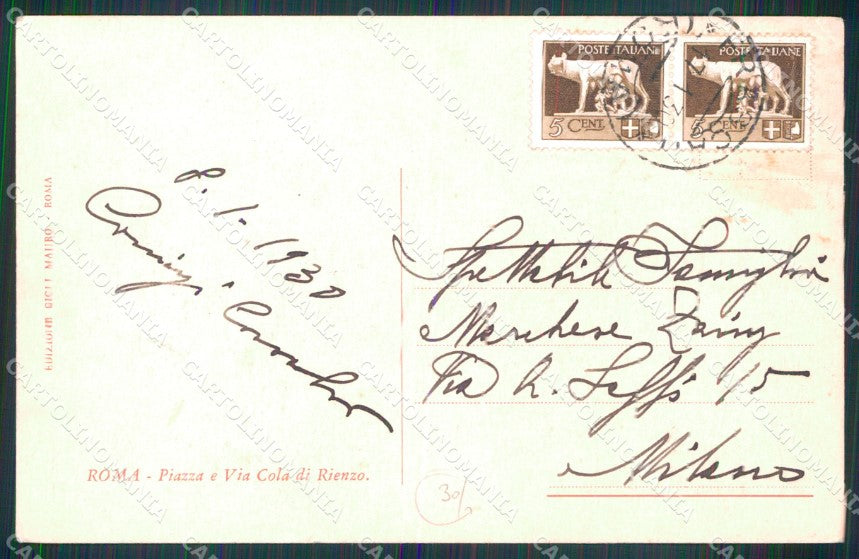 POSTE ITALIANE
5 CENT
POSTE ITALIANE
5 CENT
8.1.1930
EDIZIONE GIGLI MAURO ROMA
Spettabile Famiglia
Marchese
Via A. Saffi 15
Milano
ROMA - Piazza e Via Cola di Rienzo.
30/
CARTOLINOMANIA